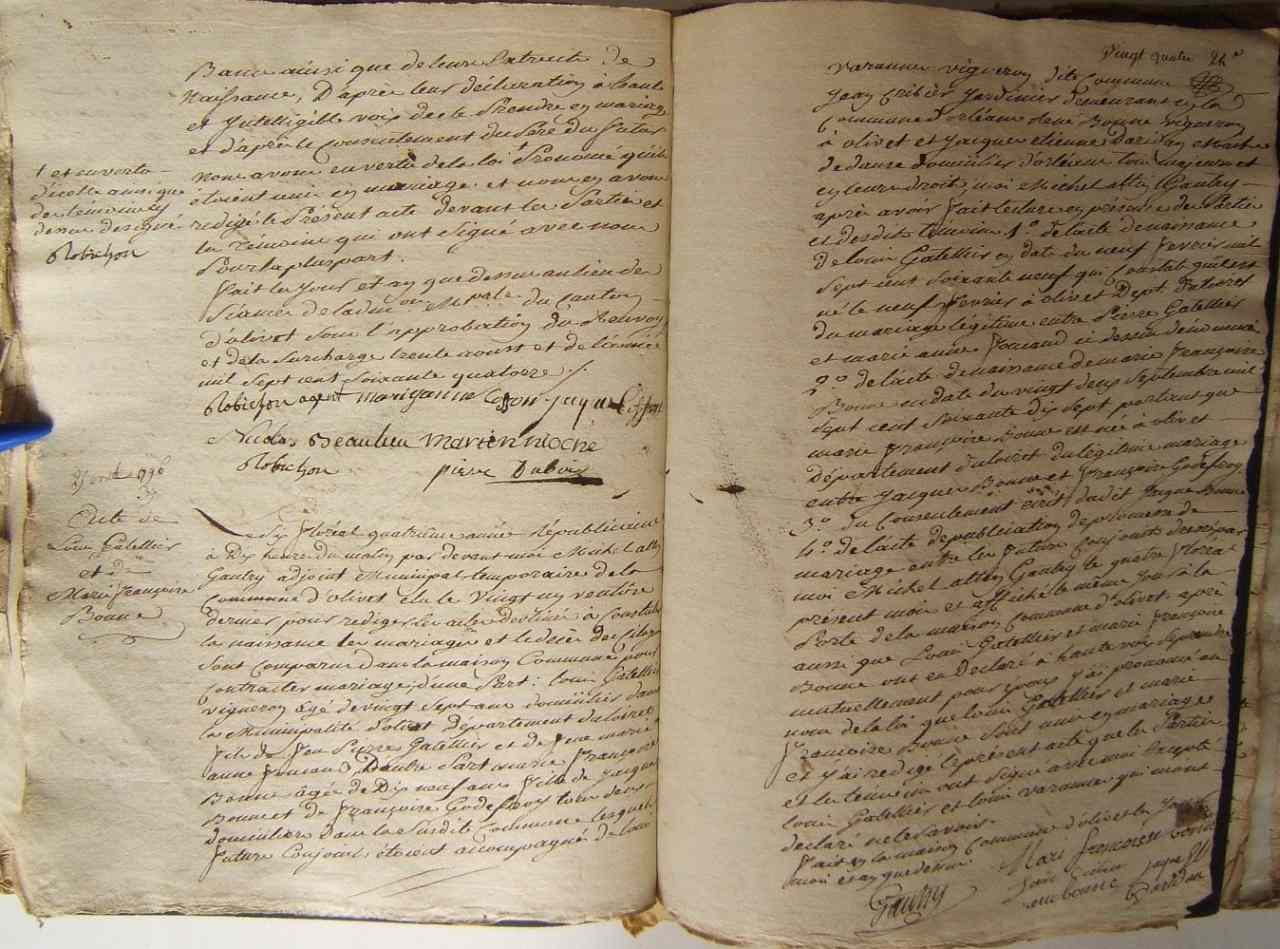 Bans ainsi que de leurs Extraits de
Naissance, D'après leur déclaration à haute
et Intelligible voix de se Prendre en mariage
et d'après le consentement du Père du futur
nous avons en vertu de la loi † Prononcé qu'ils
étoient unis en mariage et nous en avons
redigé le Présent acte devant les Parties et
les Témoins qui ont signé avec nous
Pour la plus part.
† et en vertu
d'icelle ainsi que
des témoins cy
dessus designé
Robichon
fait les Jour et an que dessus au lieu des
Séances de la du
d'olivet sous l'approbation du Renvoy
et de la Surcharge trente aoust et de l'année
mil Sept cent Soixante quatorze ./.
Robichon agent marianne
Nicolas Beaulieu
Robichon pierre Dubois
Acte de
Louis Gatellier
et de
Marie françoise
Bonne
Le Six floréal quatrieme année républicaine
à Dix heures du matin par devant moi Michel
Gautry adjoint Municipal temporaire de la
Commune d'olivet élu le Vingt un ventôse
dernier pour rediger les actes destinés à constater
la naissance les mariages et le décès des Citoyens
Sont Comparus dans la maison Commune pour
Contracter mariage, d'une Part : louis Gatellier
vigneron âgé de vingt Sept ans domicilié dans
la Municipalité d'olivet département du loiret
fils de feu Pierre Gatellier et de feue marie
anne D'autre Part marie françoise
Bonne âgée de Dix neuf ans fille de Jacques
Bonne et de françoise Godefroy tous deux
domiciliés dans la Susdite Commune lesquels
futurs Conjoints étoient accompagné de louis
Vingt quatre 24
varanne vigneron dite Commune
Jean Jardinier demeurant en la
Commune d'orléans Bonne vigneron
à olivet et Jacques etienne maitre
de danse domicilié d'orléans tous majeurs et
en leurs droits, moi Michel Gautry
après avoir fait lecture en présence des Parties
et desdits temoins 1.º de l'acte de naissance
de louis Gatellier en date du neuf fevrier mil
sept cent soixante neuf qui Constate qu'il est
né le neuf fevrier à olivet Dept. du loiret
du mariage légitime entre Pierre Gatellier
et marie anne ci dessus dénommés
2.º de l'acte de naissance de marie françoise
Bonne en date du vingt deux Septembre mil
sept cent soixante dix sept portant que
marie françoise Bonne est née à olivet
département du loiret du légitime mariage
entre Jacques Bonne et françoise Godefroy
3.º du Consentement écrit dudit Jacque Bonne
4.º de l'acte de publication de promesse de
mariage entre les futurs Conjoints dressé par
moi Michel Gautry le quatre floréal
présent mois et affiché le même Jour à la
Porte de la maison Commune d'olivet après
aussi que Louis Gatellier et marie françoise
Bonne ont eu Déclaré à haute voix se prendre
mutuellement pour époux J'ai prononcé au
nom de la loi que louis Gatellier et marie
françoise Bonne sont unis en mariage
et J'ai redigé le présent acte que les Parties
et les témoins ont signé avec moi Excepté
louis Gatellier et louis varanne qui m'ont
declaré ne le Savoir.
fait en la maison Commune d'olivet les Jour
mois et an que dessus.
Gautry